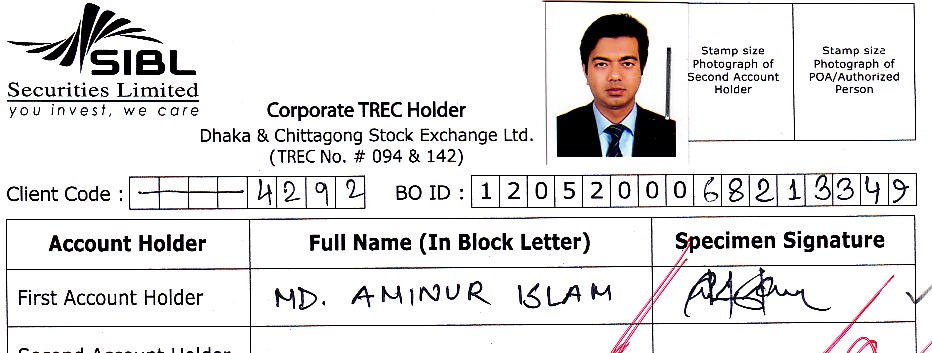 SIBL
Securities Limited
you invest, we care
Corporate TREC Holder
Dhaka & Chittagong Stock Exchange Ltd.
(TREC No. # 094 & 142)
Stamp size
Photograph of
Second Account
Holder
Stamp size
Photograph of
POA/Authorized
Person
Client Code : 4292 BO ID : 1205200068213349
Account Holder Full Name (In Block Letter) Specimen Signature
First Account Holder MD. AMINUR ISLAM
Second Account Holder